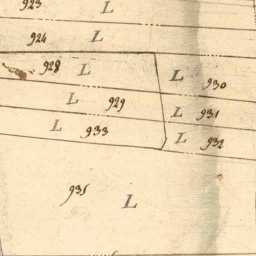 923 L
924 L
928 L
L 930
L 929
L 931
L 933
L 932
935 L